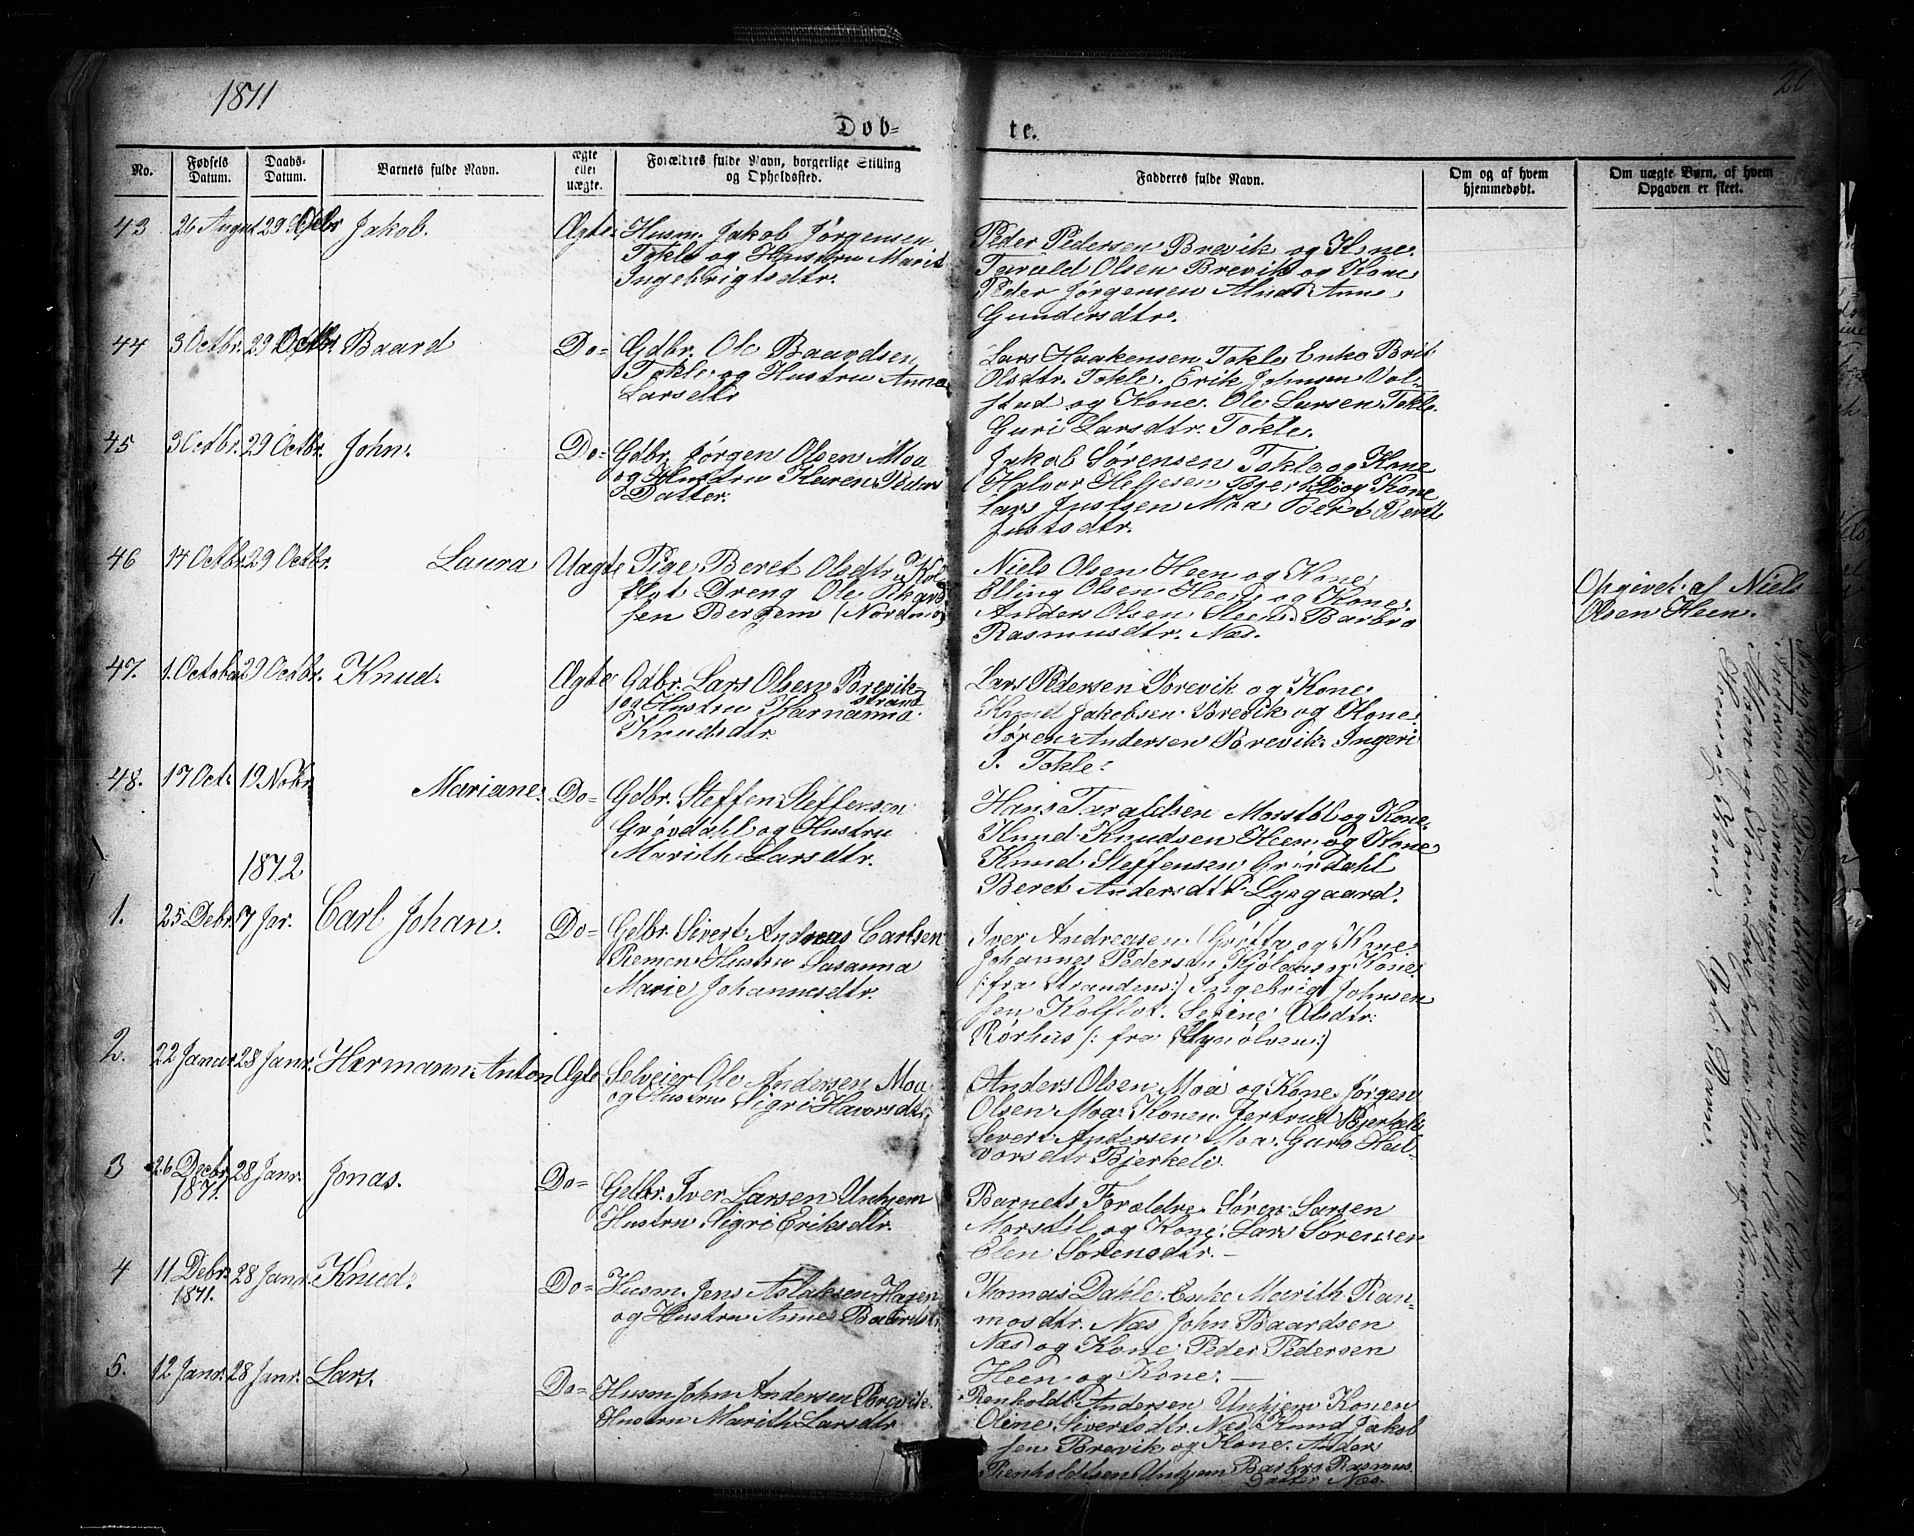 1871
26
Døb-
te.
No.
Fødsels Datum.
Daabs-Datum.
Barnets fulde Navn.
ægte eller uægte.
Forældres fulde Navn, borgerlige Stilling og Opholdssted.
Fadderes fulde Navn.
Om og af hvem hjemmedøbt.
Om uægte Børn, af hvem Opgaven er skeet.
43 26 August 29 Octbr Jakob. Ægte
Husm. Jakob Jørgensen
Tokle og Hustru Marit
Ingebrigtsdtr.
Peder Pedersen Brevik og Kone.
Tarald Olsen Brevik og Kone
Peder Jørgensen Anne
Gundersdtr.
44 3 Octbr. 29 Octbr. Baard Do=
Gdbr. Ole Baardsen
Tokle og Hustru Anna
Larsdtr
Lars Haakensen Tokle Enke Brit
Olsdtr. Tokle. Erik Johnsen Vol-
stad og Kone. Ole Larsen Tokle.
Guri Larsdtr. Tokle.
45 3 Octbr. 29 Octbr. John. Do=
Gdbr. Jørgen Olsen Moa
og Hustru Karen Peders
Datter.
Jakob Sørensen Tokle og Kone
Halvor Heljesen Bjerkeli og Kone
Lars Justsen Moa Beret
Justsdtr.
46 14 Octbr 29 Octbr. Laura Uægte
Pige Beret Olsdtr. Kol-
flot Dreng Ole
sen Bergem (Nordmør)
Niels Olsen Heen og Kone
Elling Olsen Heen og Kone.
Anders Olsen Heen Barbro
Rasmusdtr. Næs.
Opgivet af Niels
Olsen Heen.
47. 1. October 29 Octbr. Knud. Ægte
Gdbr. Lars Olsen Brevik-
strand
og Hustru Karnanna
Knudsdtr.
Lars Pedersen Brevik og Kone
Knud Jakobsen Brevik og Kone.
Søren Andersen Brevik. Ingeri
I. Tokle.
48. 17 Oct. 19 Nobr. Mariane. Do=
Gdbr. Steffen Steffensen
Grøvdahl og Hustru
Marith Larsdtr.
Hans Taraldsen Morstøl og Kone.
Knud Knudsen Heen og Kone
Knud Steffensen Grøvdahl
Beret Andersdtr. Lysgaard.
1872
1. 25 Debr. 7 Jar. Carl Johan. Do=
Gdbr. Sivert Andreas Carlsen
Remen Hustru Susanna
Marie Johannesdtr.
Iver Andreasen Grøtta og Kone
Johannes Pedersen Kjølaas og Kone
(:fra Strandens:) Ingebrigt Johnsen
sen Kolflot. Serine Olsdtr.
Rørhus (: fra :)
2. 22 Januar 28 Janr. Hermann Anton Ægte
Selveier Ole Andersen Moa
og Hustru Sigri Havorsdtr.
Anders Olsen Moa og Kone Jørgen
Olsen Moa Konen Jertrud Bjerkeli
Severt Andersen Moa. Guro Hal-
vorsdtr Bjerkeli.
3 26 Decbr 1871. 28 Janr. Jonas. Do=
Gdbr. Iver Larsen Unhjem
Hustru Sigri Eriksdtr.
Barnets Forældre Søren Larsen
Morstøl og Kone. Lars Sørensen
Elen Sørensdtr. —
4 11 Debr. 1871. 28 Janr. Knud. Do=
Husm. Jens Aslaksen Hagen
og Hustru Anne Baardsdtr.
Thomas Dahle. Enke Marith Ras-
mosdtr. Næs John Baardsen
Næs og Kone. Peder Pedersen
Heen og Kone. —
5. 12 Janr. 28 Janr. Lars. Do=
Husm John Andersen Brevik.
Hustru Marith Larsdtr
Renholdt Andersen Unhjem Konen
Oline Sivertsdtr. Næs Knud Jakob
sen Brevik og Kone. Ander
Renholdtsen Unhjem Barbro Rasmus
Datter Næs.